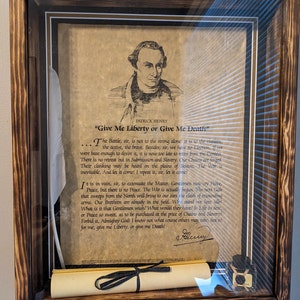 PATRICK HENRY
"Give Me Liberty or Give Me Death"
...The Battle, sir, is not to the strong alone; it is to the
the active, the brave. Besides, sir, we have no Election. If we
were base enough to desire it, it is now too late to retire from the
There is no retreat but in Submission and Slavery. Our Chains are forged.
Their clanking may be heard on the plains of Boston. The War is
inevitable. And let it come! I repeat it, sir, let it come!
It is in vain, sir, to extenuate the Matter. Gentlemen may cry Peace,
Peace, but there is no Peace. The War is actually begun. The next Gale
that sweeps from the North will bring to our ears the clash of
arms. Our Brethren are already in the field.
What is it that Gentlemen wish? What would they have? Is Life so
or Peace so sweet, as to be purchased at the price of Chains and Slavery?
Forbid it, Almighty God. I know not what course others may take, but as
for me, give me Liberty, or give me Death!
P. Henry